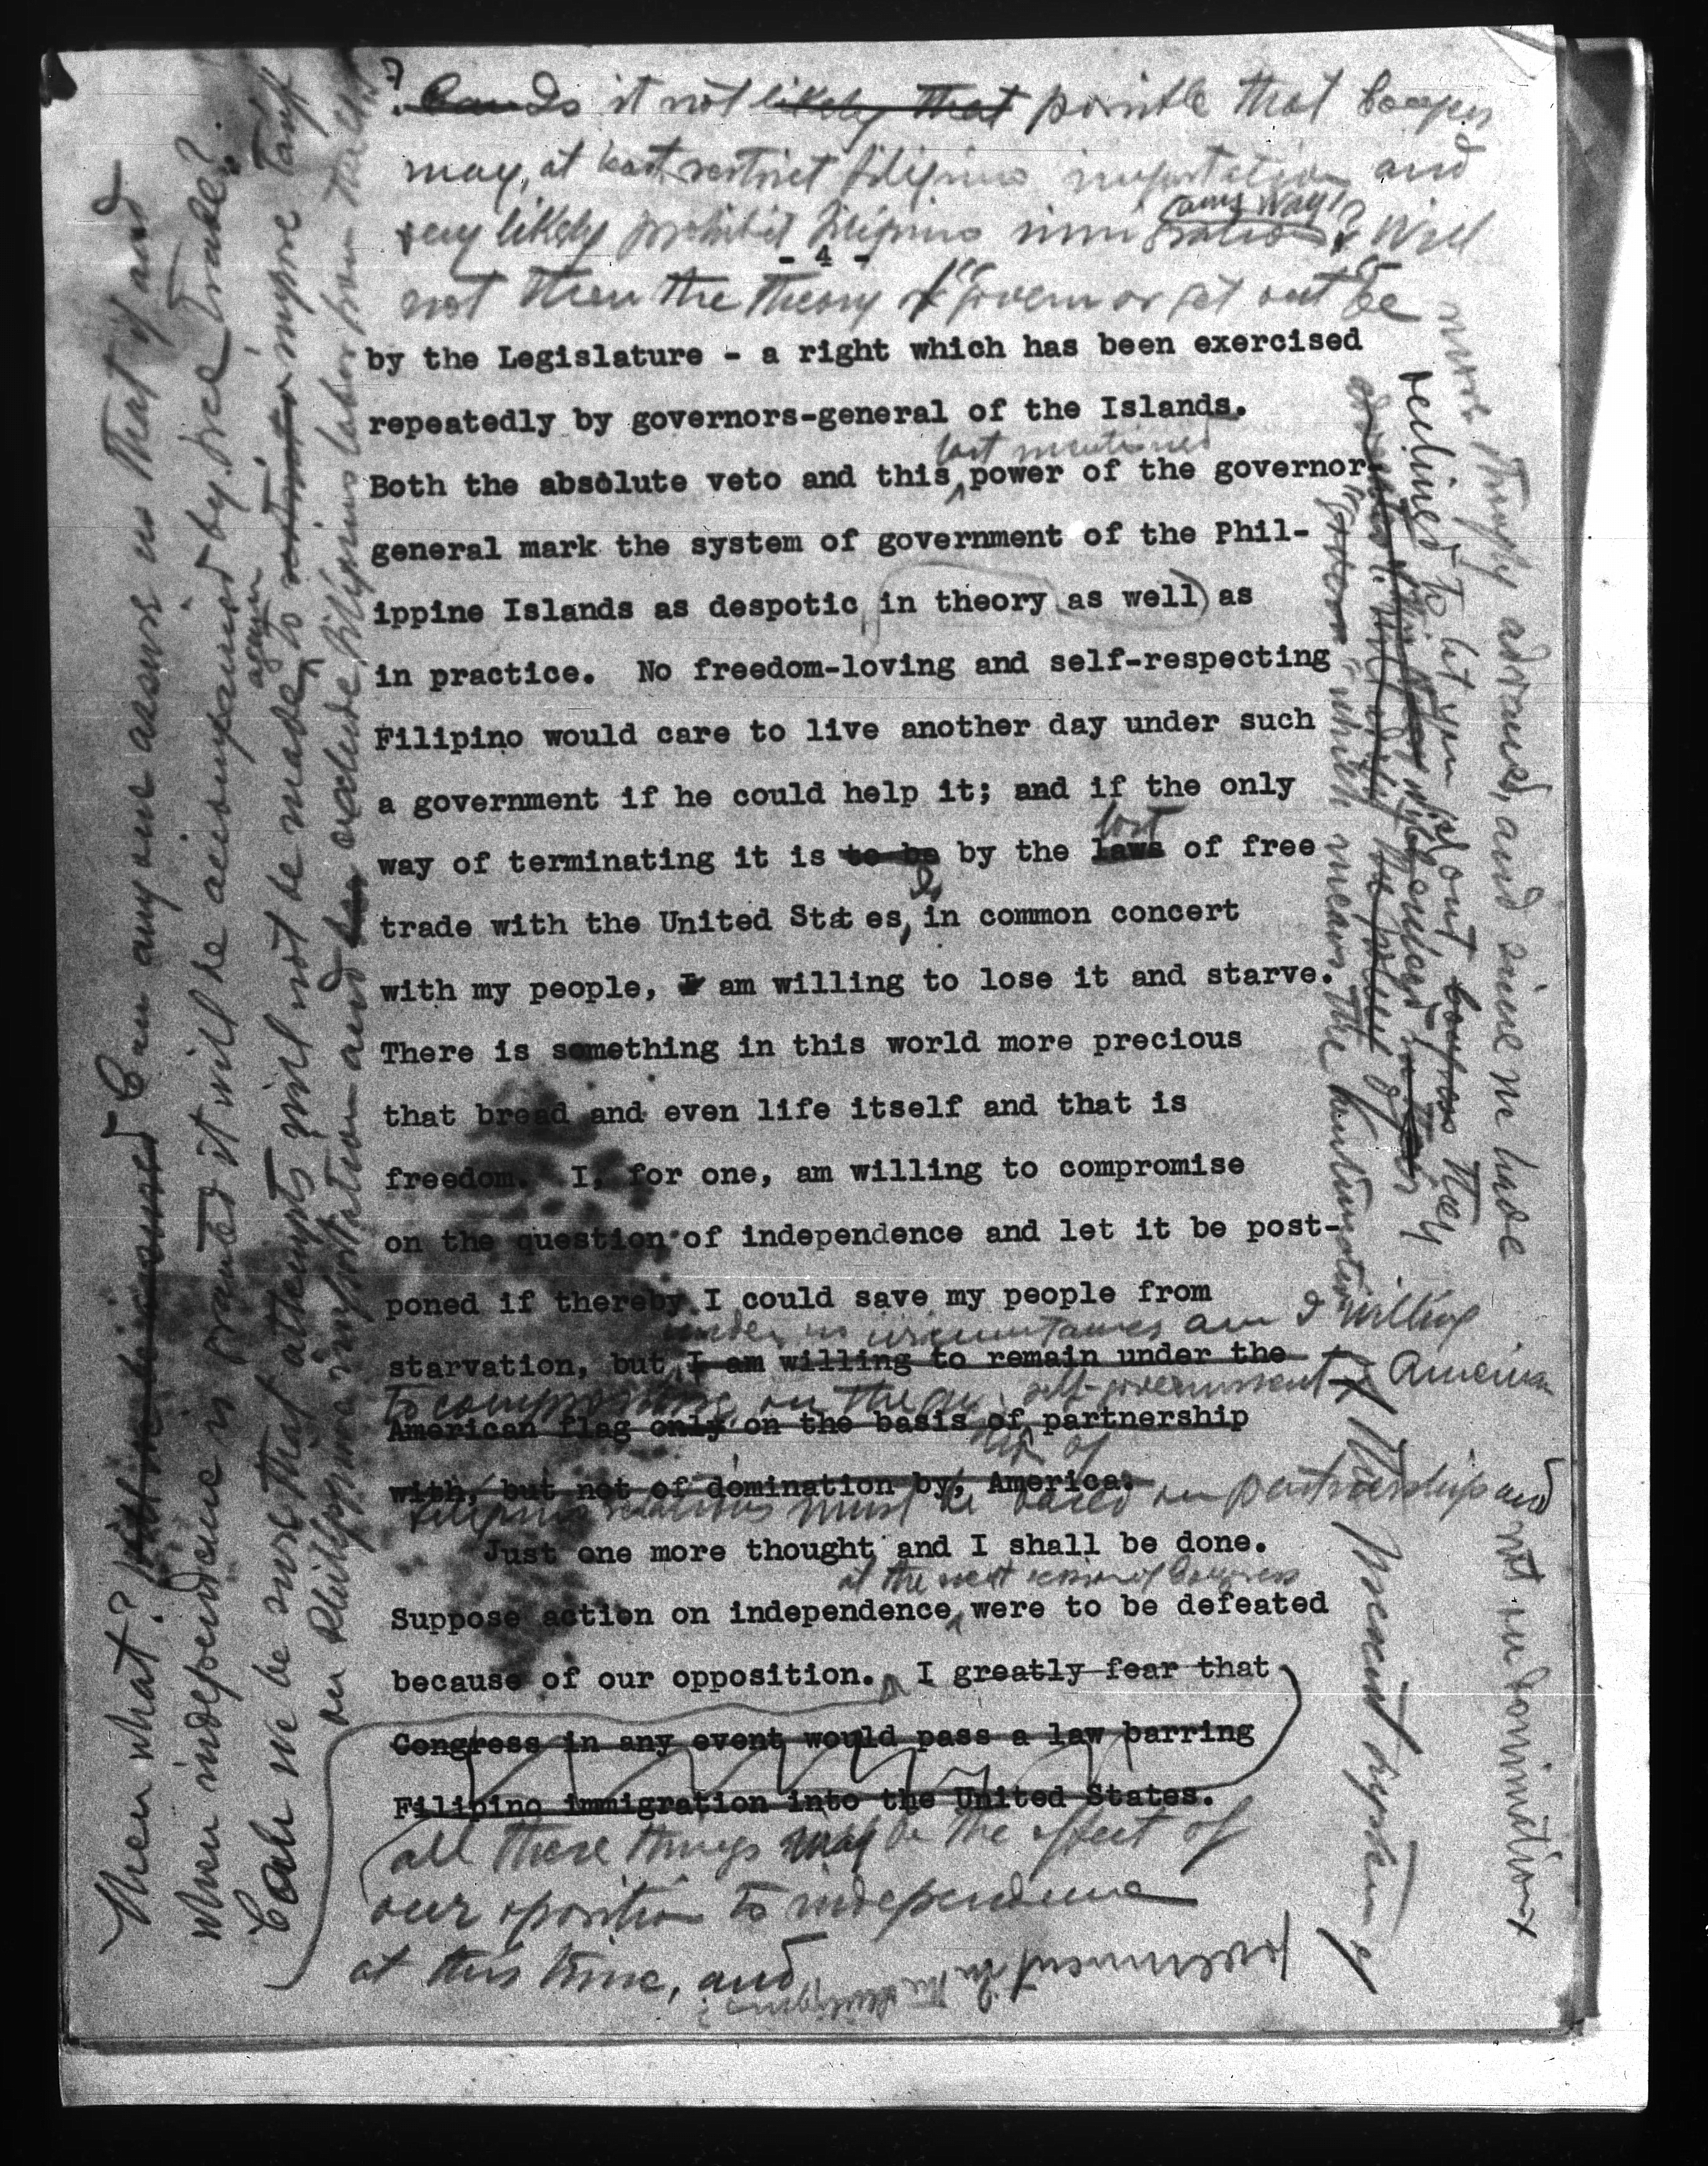 ? Is it not likely that possible that Congress
may, at least, restrict Filipino importation and
very likely prohibit Filipino immigration anyway? Will
- 4 -
not then the theory of "govern or get out" be
by the Legislature - a right which has been exercised
repeatedly by governors-general of the Islands.
last mentioned
Both the absolute veto and this power of the governor-
general mark the system of government of the Phil-
ippine Islands as despotic in theory as well as
in practice. No freedom-loving and self-respecting
Filipino would care to live another day under such
a government if he could help it; and if the only
lost
way of terminating it is to be by the laws of free
trade with the United States, in common concert
with my people, I am willing to lose it and starve.
There is something in this world more precious
that bread and even life itself and that is
freedom. I, for one, am willing to compromise
on the question of independence and let it be post-
poned if thereby I could save my people from
under no circumstances am I willing
starvation, but I am willing to remain under the
to compromise on the self-government American
American flag only on the basis of partnership
with, but not of domination by, America.
Filipino relations must be based on partnership and not in domination
Just one more thought and I shall be done.
at the next session of Congress
Suppose action on independence were to be defeated
because of our opposition. I greatly fear that
Congress in any event would pass a law barring
Filipino immigration into the United States.
all these things may be the effect of
our oposition to independence
at this time, and
Then what? Can any one assure us that if and
when independence is granted it will be accompanied by free trade?
Can we be sure that attempts will not be made again to impose tariff
on Philippine importation and exclude Filipino labor from the
more strongly advanced, and since we have
declined to let you go out, Congress
which means the continuation
of the present system of
government in the Philippines?